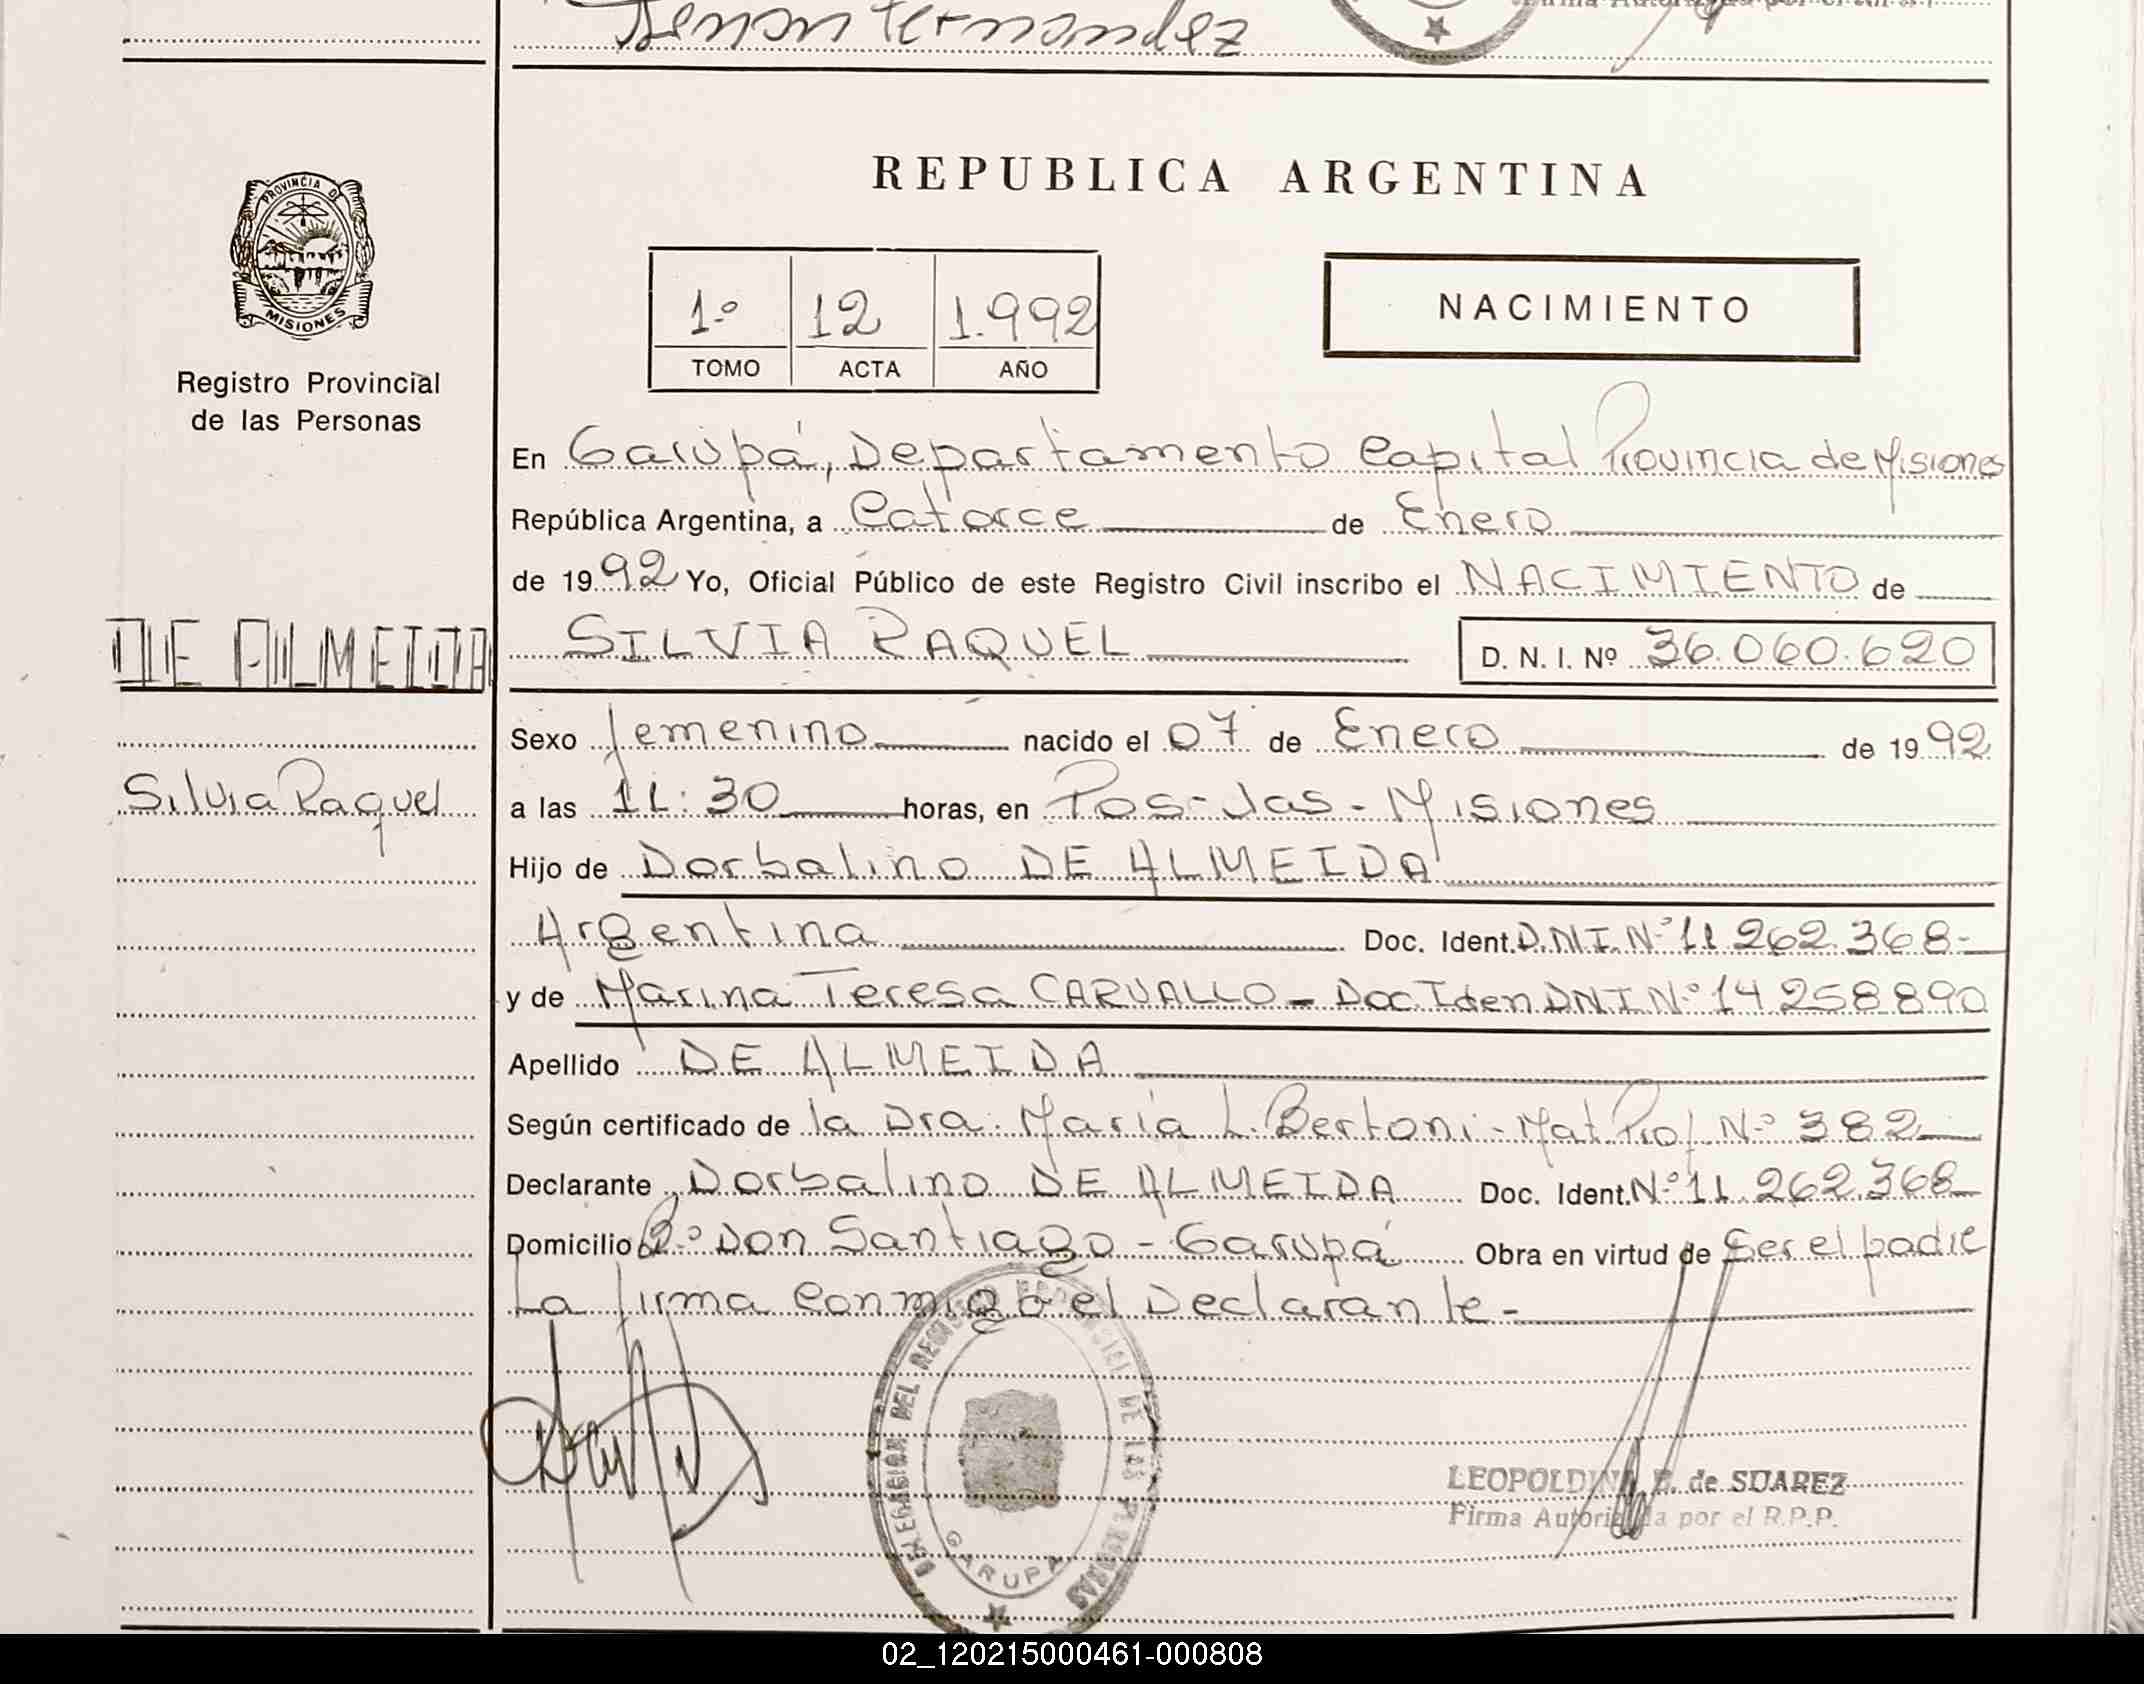 Fernandez
REPUBLICA ARGENTINA
PROVINCIA DE
MISIONES
Registro Provincial
de las Personas
1.º 12 1.992
TOMO ACTA AÑO
NACIMIENTO
En Garupá, Departamento Capital Provincia de Misiones
República Argentina, a Catorce de Enero
de 1992 Yo, Oficial Público de este Registro Civil inscribo el NACIMIENTO de
DE ALMEIDA
SILVIA RAQUEL D. N. I. Nº 36.060.620
Sexo femenino nacido el 07 de Enero de 1992
Silvia Raquel
a las 11:30 horas, en Posadas - Misiones
Hijo de Dorbalino DE ALMEIDA
Argentina Doc. Ident. D.N.I. Nº 11.262.368-
y de Marina Teresa CARVALLO - Doc Iden DNI Nº 14.258890
Apellido DE ALMEIDA
Según certificado de la Dra. María L. Bertoni - Mat Prof Nº 382
Declarante Dorbalino DE ALMEIDA Doc. Ident. Nº 11.262.368
Domicilio Bº Don Santiago - Garupá Obra en virtud de Ser el padre
La firma conmigo el Declarante -
DELEGACION DEL REGISTRO PROVINCIAL DE LAS PERSONAS
GARUPA
LEOPOLDINA E. de SUAREZ
Firma Autorizada por el R.P.P.
02_120215000461-000808